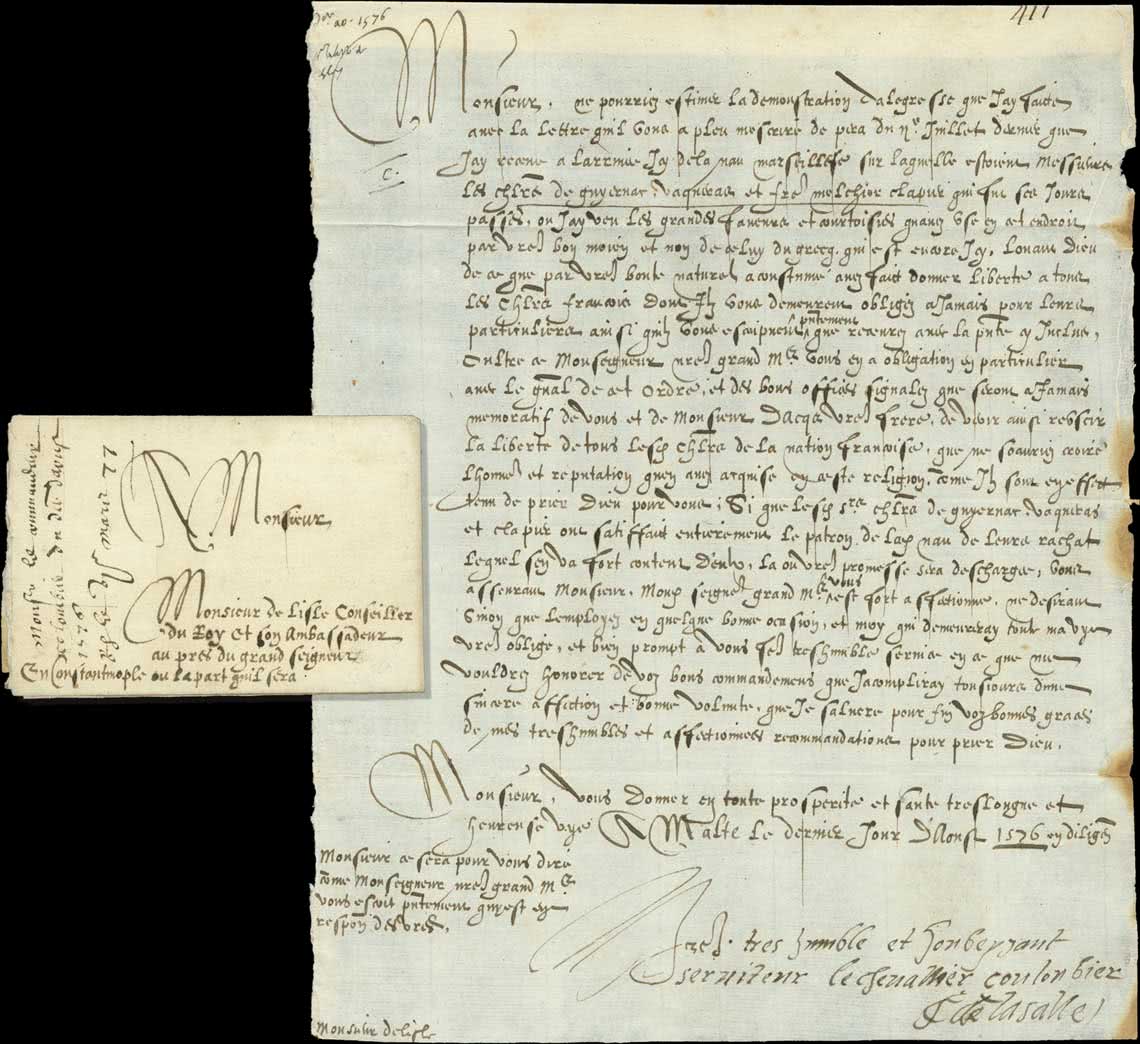 1576
417
Monsieur, ne pourriez estimer la demonstration dalegresse que Jay faicte
avec la lettre quil vous a pleu mescrire de pera du Juillet dernier que
Jay receue a larrivee Icy de la nau marseillese sur laquelle estoient Messieurs
c.
les chlrs de guyernac, vaqueras et frere melchior clapier qui fut ces Jours
passes, ou Jay veu les grandes faveurs et courtoisies quavez use en cet endroit
par vre bon moien et non de celuy du grecq, qui est encore Icy, Louant Dieu
de ce que par vre bonte naturel acoustume avez faict donner liberte a tous
les Chlrs francois dont Ilz vous demeurent obligez a Jamais pour leurs
particuliers ainsi quilz vous escripvent pntement que recevrez avec la pnte cy Incluse,
Oultre ce Monseigneur nre grand Me vous en a obligation en particulier
avec le gnal de cet Ordre, et des bons offices signalez que seront a Jamais
memoratif de vous et de Monsieur Dacqs vre frere, de veoir ainsi
la liberte de tous lesd chlrs de la nation francoise, que ne scauriez croire
lhonneur et reputation quen avez acquise en ceste religion, come Ilz sont en effect
tenu de prier Dieu pour vous, Si que lesd srs chlrs de guyernac, vaqueras
et clapier ont satisffaict entierement le patron de lad nau de leurs rachat
lequel sen va fort content deux, la ou vre promesse sera deschargee, vous
asseurant Monsieur, Mond seigneur grand Me vous est fort affectionne, ne desirant
Sinon que lemployez en quelque bonne ocasion, et moy qui demeureray toute ma vye
vre oblige, et bien prompt a vous fere treshumble service en ce que me
vouldrez honorer de voz bons commandemens que Jacompliray tousiours dune
sincere affection et bonne volunte, que Je saluere pour fin voz bonnes graces
de mes treshumbles et affectionnees recommandations pour prier Dieu,
Monsieur, vous donner en toute prosperite et sante treslongue et
heureuse vye A Malte le dernier Jour D'Aoust 1576 en diligence
Monsieur ce sera pour vous dire
come Monseigneur nre grand Me
vous escrit pntement qui est en
respon des vres.
Vre tres humble et hobeyssant
serviteur le chevallier coulonbier
de lasalle
Monsieur delisle
Monsieur
Monsieur de Lisle Conseiller
du Roy et son Ambassadeur
au pres du grand seigneur
En Constantinople ou la part quil sera
Monsr le commandeur
de colombier du der daoust
1576
mars 77